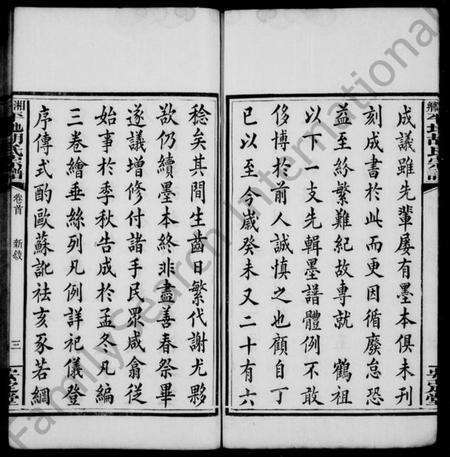 成議雖先輩屢有墨本俱未刊
刻成書於此而更因循廢怠恐
益至紛繁難紀故專就 鶴祖
以下一支先輯墨譜體例不敢
侈博於前人誠慎之也顧自丁
巳以至今歲癸未又二十有六
稔矣其間生齒日繁代謝尤夥
欿仍續墨本終非盡善春祭畢
遂議增修付諸手民眾咸翕從
始事於季秋告成於孟冬凡編
三卷繪垂絲列凡例詳祀儀登
序傳式酌歐蘇訛祛亥豕若綱
卷首 新敘
三
FamilySearch International